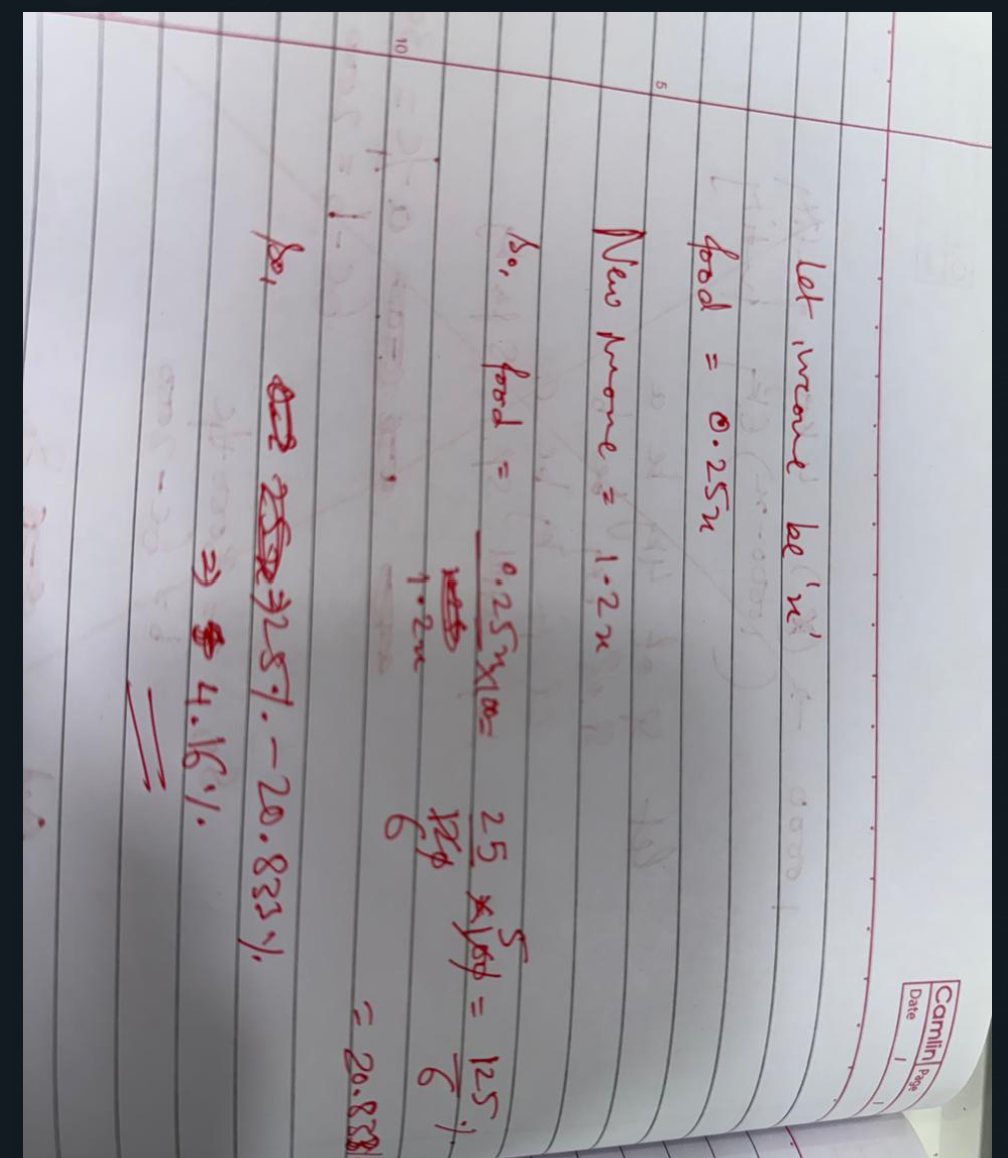 Camlin Page
Date / /
Let income be 'x'
food = 0.25x
5
New income = 1.2x
so, food = 0.25x × 100 = 25 × 100 5 = 125 %
1.2x 120 6 6
10
= 20.833
so, ⇒ 25% - 20.833%
⇒ 4.16%